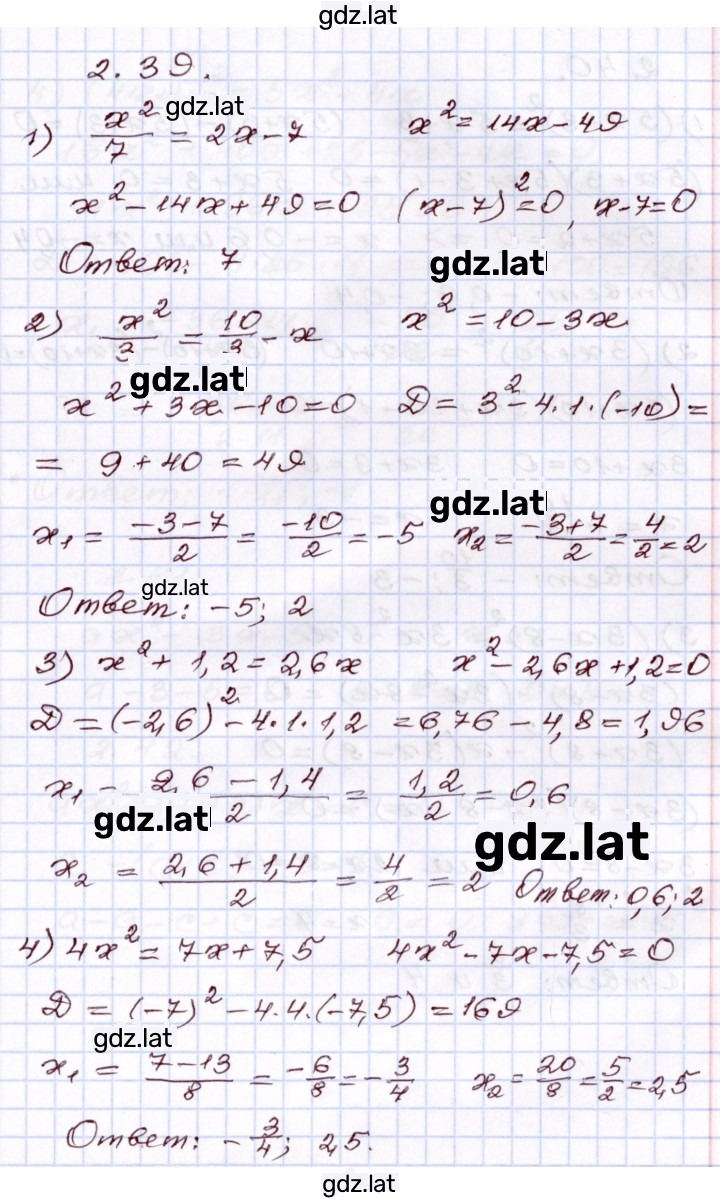 gdz.lat
2.39.
gdz.lat
1) x²/7 = 2x-7 x² = 14x-49
x²-14x+49=0 (x-7)²=0, x-7=0
Ответ: 7 gdz.lat
2) x²/3 = 10/3 - x x² = 10-3x
gdz.lat
x²+3x-10=0 D = 3²-4·1·(-10)=
= 9+40 = 49
gdz.lat
x₁ = (-3-7)/2 = -10/2 = -5 x₂ = (-3+7)/2 = 4/2 = 2
gdz.lat
Ответ: -5; 2
3) x²+1,2=2,6x x²-2,6x+1,2=0
D = (-2,6)²-4·1·1,2 = 6,76-4,8=1,96
x₁ - (2,6-1,4)/2 = 1,2/2 = 0,6
gdz.lat gdz.lat
x₂ = (2,6+1,4)/2 = 4/2 = 2 Ответ: 0,6; 2
4) 4x² = 7x+7,5 4x²-7x-7,5=0
D = (-7)²-4·4·(-7,5) = 169
gdz.lat
x₁ = (7-13)/8 = -6/8 = -3/4 x₂ = 20/8 = 5/2 = 2,5
Ответ: -3/4; 2,5.
gdz.lat